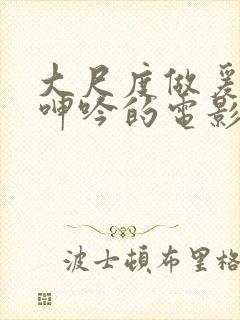 大尺度做爰
呻吟的电影
波士頓布里格